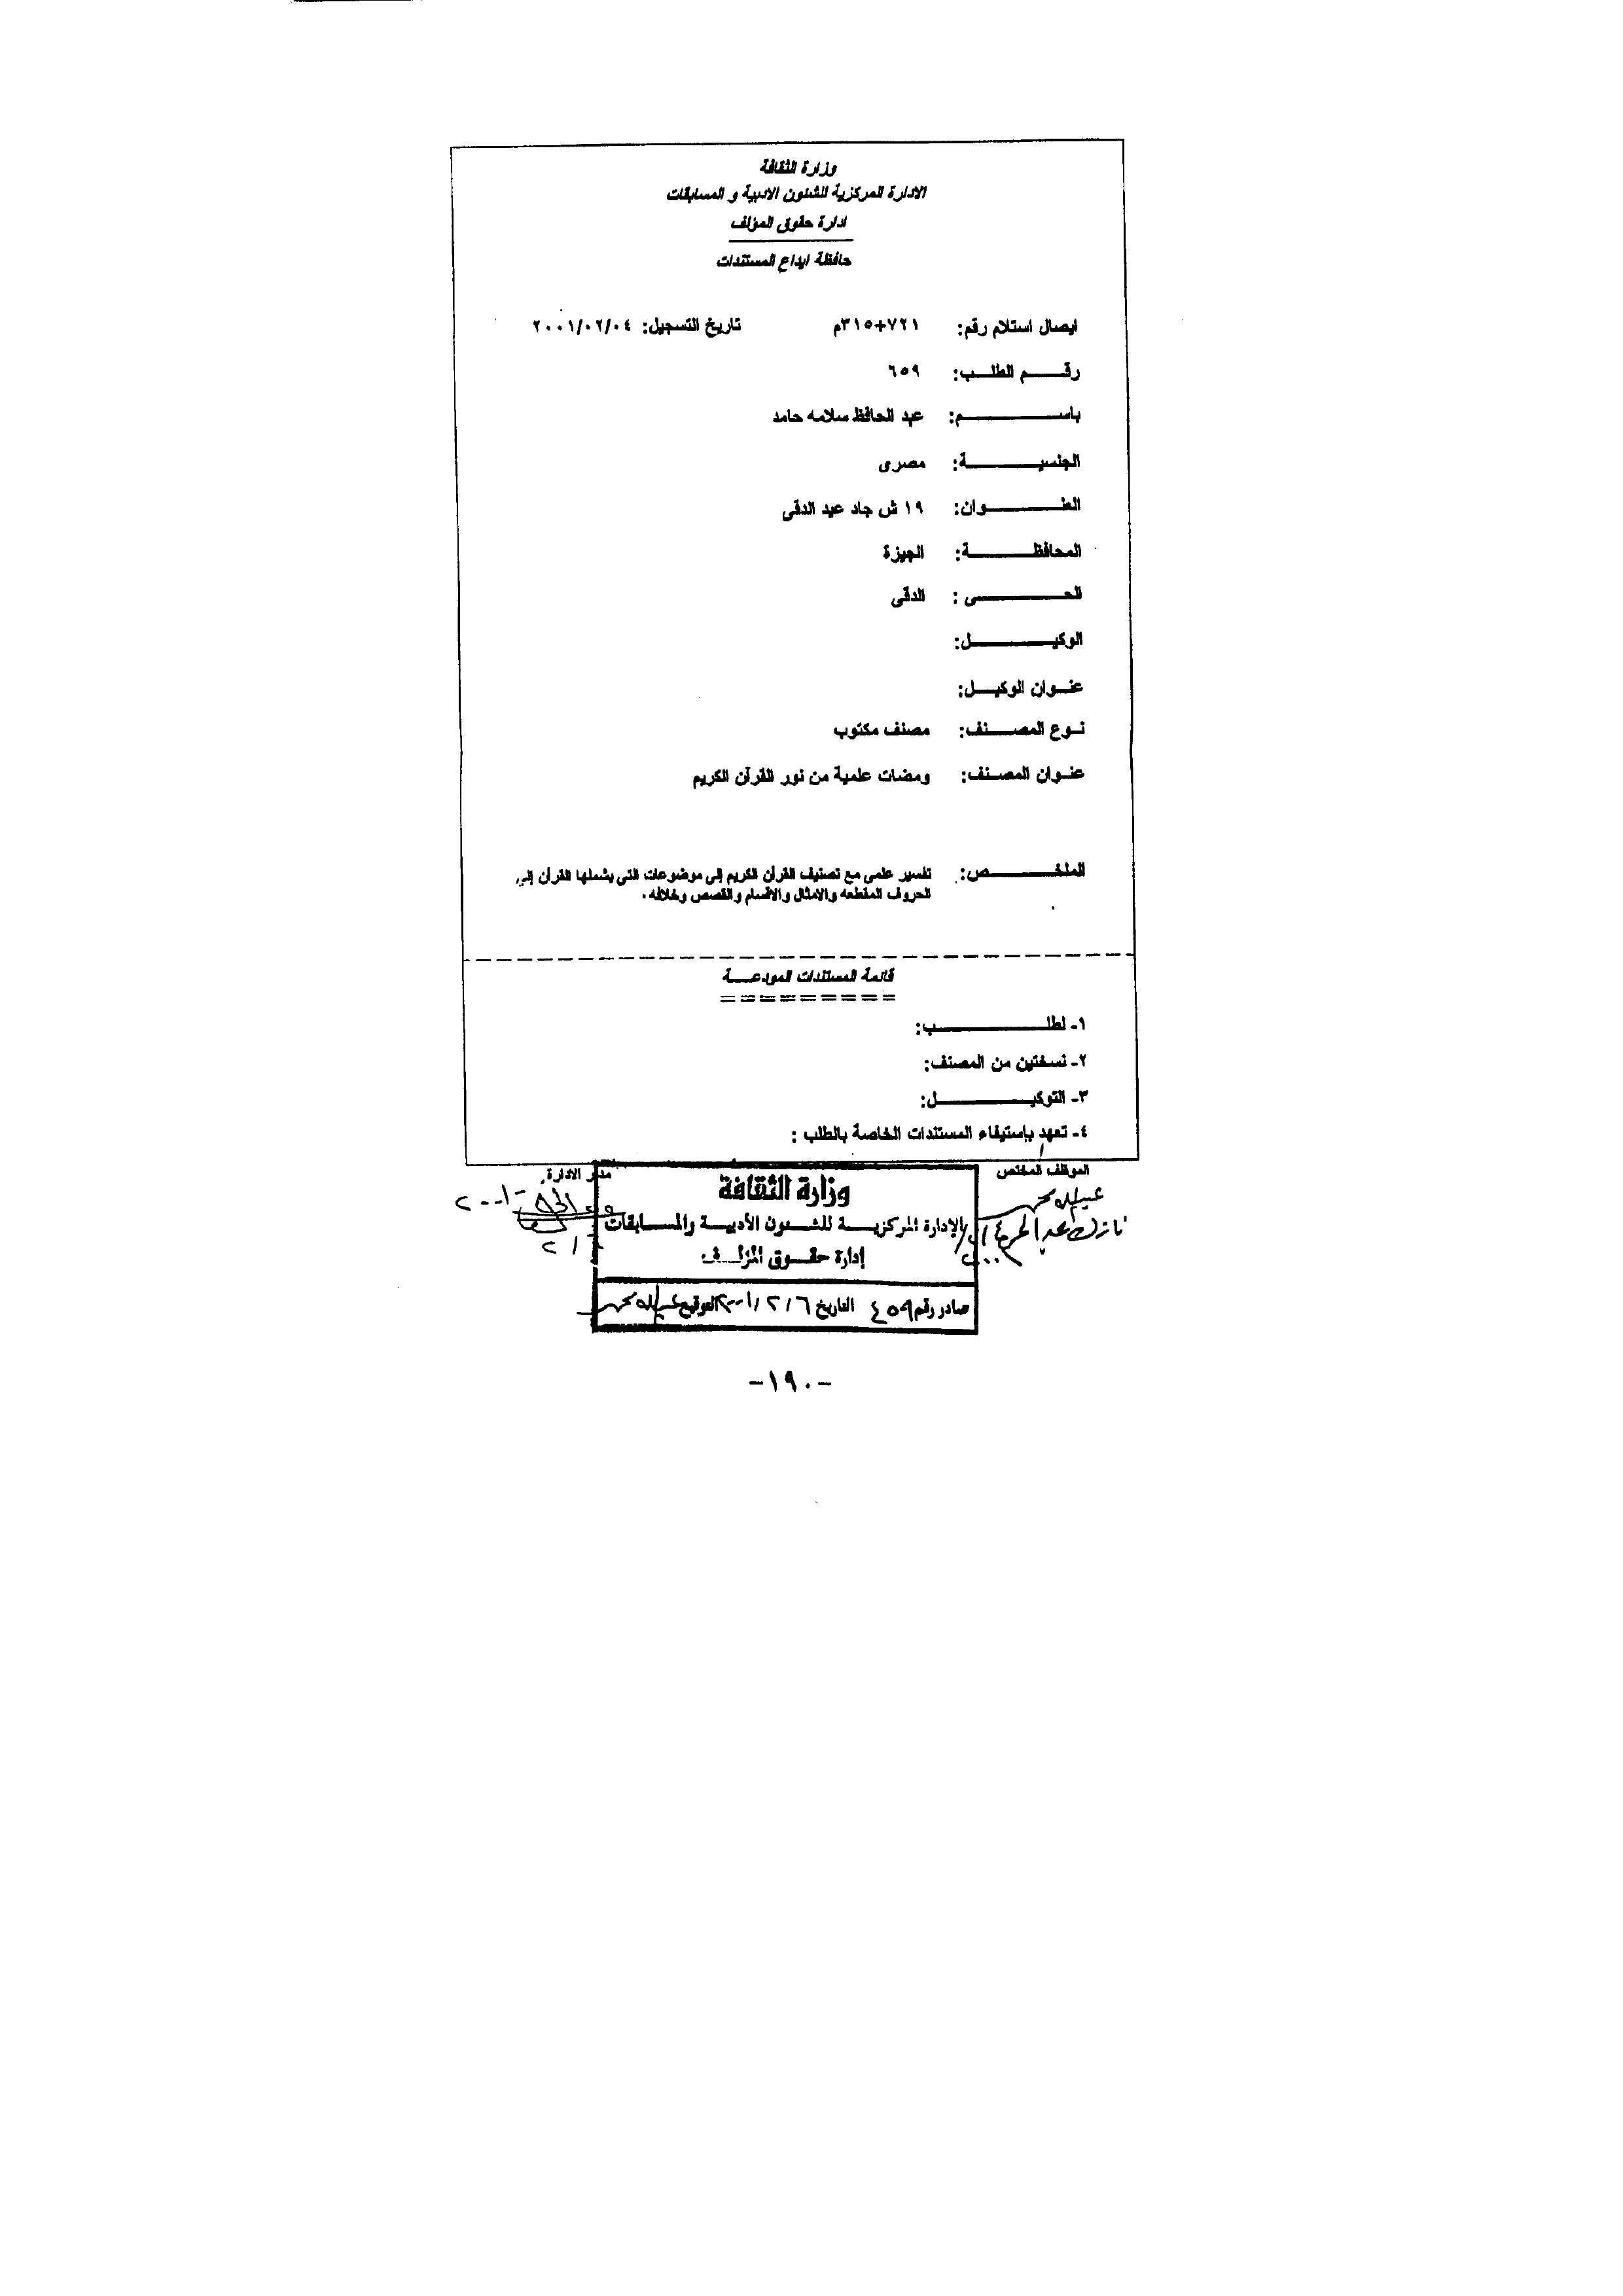 وزارة الثقافة
الادارة المركزية للشئون الادبية و المسابقات
ادارة حقوق المؤلف
حافظة ايداع المستندات
ايصال استلام رقم: ٧٢١+٣١٥م تاريخ التسجيل: ٢٠٠١/٠٢/٠٤
رقـــــم الطلـــب: ٦٥٩
باســـــــــــــم: عبد الحافظ سلامه حامد
الجنسيـــــــــة: مصرى
العنـــــــــوان: ١٩ ش جاد عيد الدقى
المحافظـــــــــة: الجيزة
الحـــــــــــى : الدقى
الوكيـــــــــــل:
عنـــوان الوكيــــل:
نــوع المصــــنف: مصنف مكتوب
عنــوان المصـنف: ومضات علمية من نور القرآن الكريم
الملخـــــــــص: تفسير علمى مع تصنيف القرآن الكريم إلى موضوعات التى يشملها القرآن إلى
الحروف المقطعه والامثال والاقسام والقصص وخلافه .
قائمة المستندات المودعــــة
= = = = = = = = =
١- لطلـــــــــــــب:
٢- نسختين من المصنف:
٣- التوكيـــــــــــل:
٤- تعهد بإستيفاء المستندات الخاصة بالطلب :
الموظف المختص مدير الادارة
وزارة الثقافة
الإدارة المركزيـــة للشـئون الأدبيـــة والمســـابقات
إدارة حقـــوق المؤلـــف
صادر رقم ٤٥٩ التاريخ ٢٠٠١/٢/٦ التوقيع
-١٩٠-